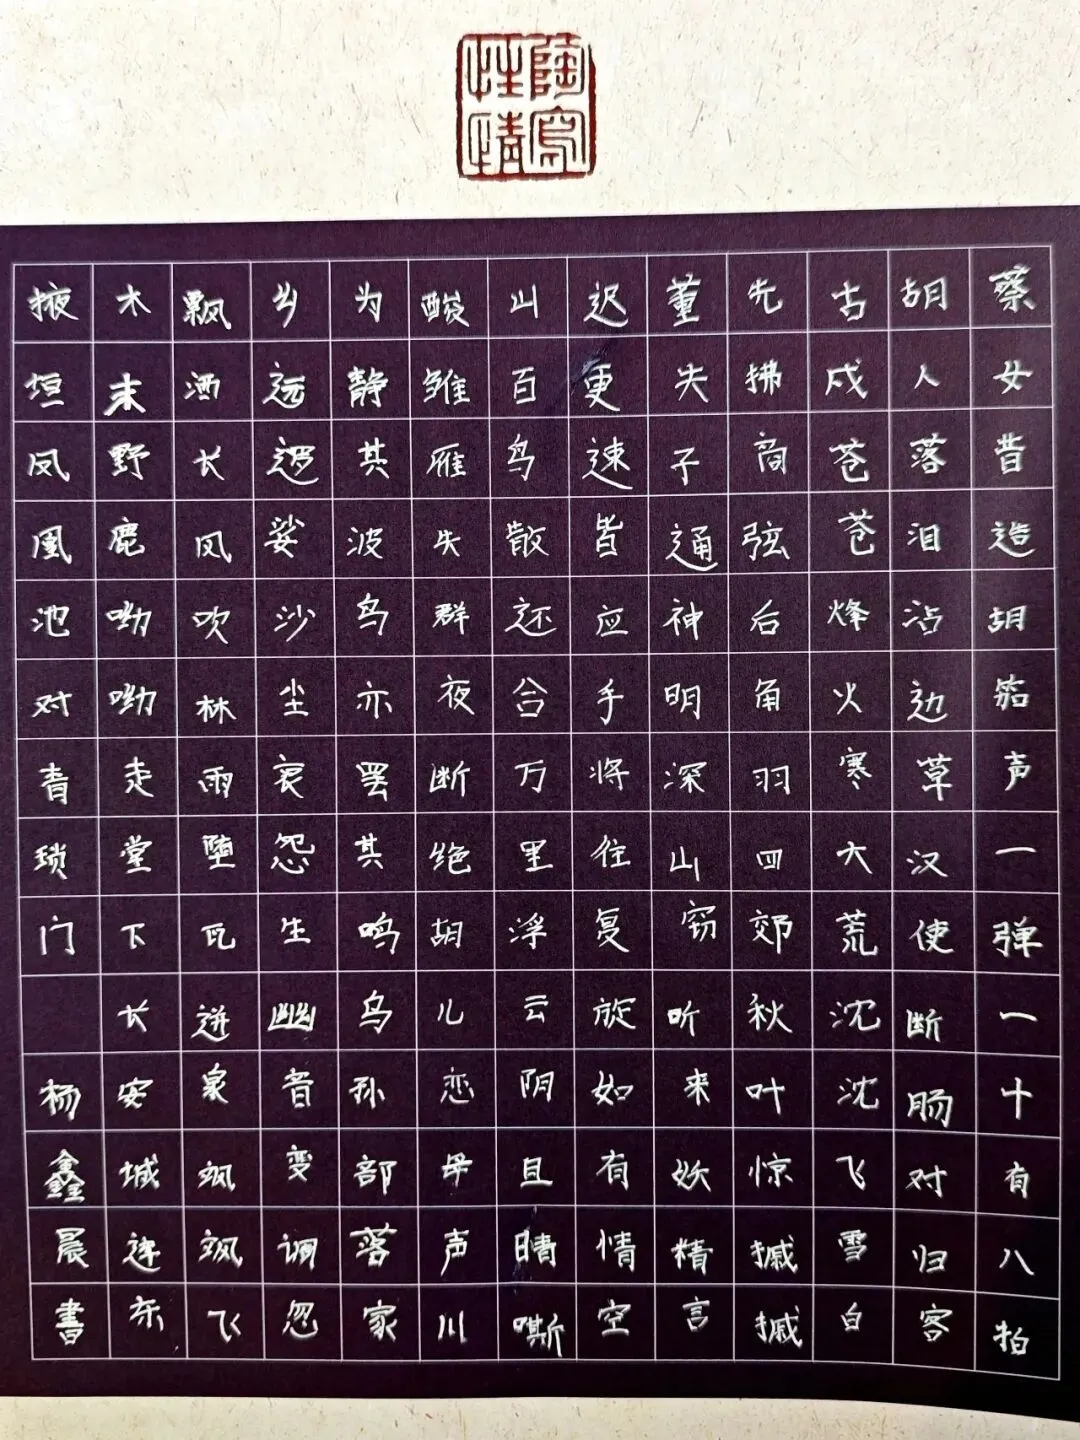 陶寫性情
蔡女昔造胡笳声一弹一十有八拍
胡人落泪沾边草汉使断肠对归客
古戍苍苍烽火寒大荒沈沈飞雪白
先拂商弦后角羽四郊秋叶惊摵摵
董失子通神明深山窃听来妖精言
迟更速皆应手将往复旋如有情空
山百鸟散还合万里浮云阴且晴嘶
酸雏雁失群夜断绝胡儿恋母声川
为静其波鸟亦罢其鸣鸟孙部落家
乡远逻娑沙尘哀怨生幽音变调忽
飘洒长风吹林雨堕瓦迸泉飒飒飞
木末野鹿呦呦走堂下长安城连东
掖垣凤凰池对青琐门 杨鑫晨書